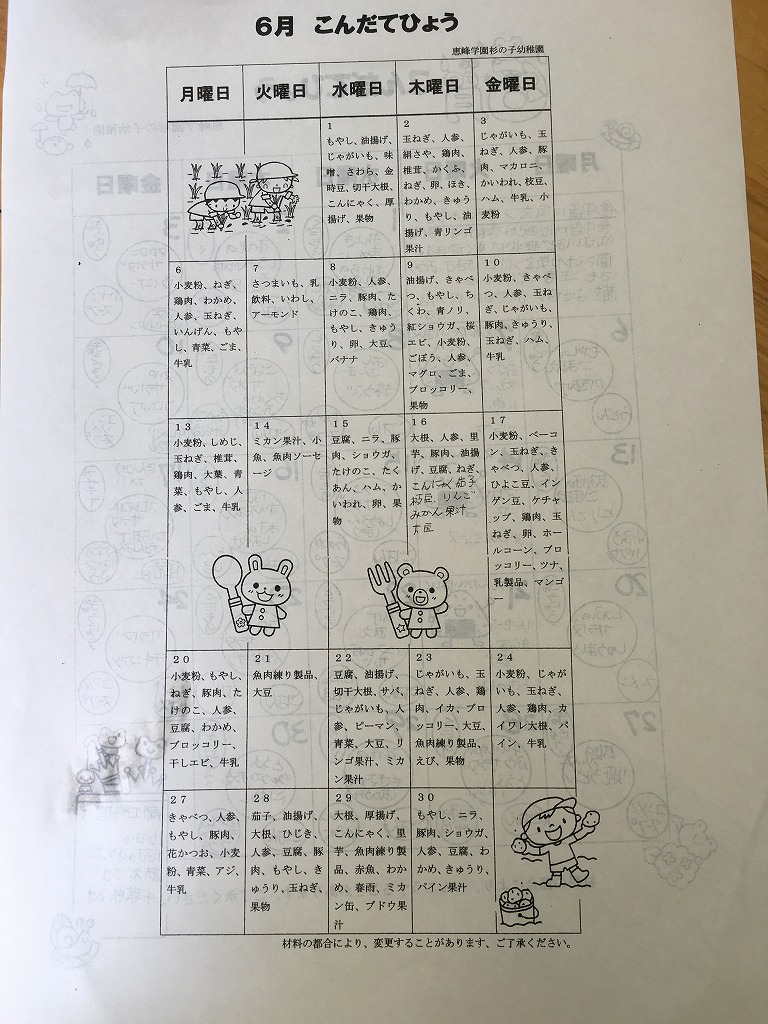 6月　こんだてひょう
恵峰学園杉の子幼稚園
月曜日
火曜日
水曜日
木曜日
金曜日
1
もやし、油揚げ、
じゃがいも、味
噌、さわら、金
時豆、切干大根、
こんにゃく、厚
揚げ、果物
2
玉ねぎ、人参、
絹さや、鶏肉、
椎茸、かくふ、
ねぎ、卵、ほき、
わかめ、きゅう
り、もやし、油
揚げ、青リンゴ
果汁
3
じゃがいも、玉
ねぎ、人参、豚
肉、マカロニ、
かいわれ、枝豆、
ハム、牛乳、小
麦粉
6
小麦粉、ねぎ、
鶏肉、わかめ、
人参、玉ねぎ、
いんげん、もや
し、青菜、ごま、
牛乳
7
さつまいも、乳
飲料、いわし、
アーモンド
8
小麦粉、人参、
ニラ、豚肉、た
けのこ、鶏肉、
もやし、きゅう
り、卵、大豆、
バナナ
9
油揚げ、きゃべ
つ、もやし、ち
くわ、青ノリ、
紅ショウガ、桜
エビ、小麦粉、
ごぼう、人参、
マグロ、ごま、
ブロッコリー、
果物
10
小麦粉、きゃべ
つ、人参、玉ね
ぎ、じゃがいも、
豚肉、きゅうり、
玉ねぎ、ハム、
牛乳
13
小麦粉、しめじ、
玉ねぎ、椎茸、
鶏肉、大葉、青
菜、もやし、人
参、ごま、牛乳
14
ミカン果汁、小
魚、魚肉ソーセ
ージ
15
豆腐、ニラ、豚
肉、ショウガ、
たけのこ、たく
あん、ハム、か
いわれ、卵、果
物
16
大根、人参、里
芋、豚肉、油揚
げ、豆腐、ねぎ、
こんにゃく茄子
枝豆、りんご
みかん果汁
大豆
17
小麦粉、ベーコ
ン、玉ねぎ、き
ゃべつ、人参、
ひよこ豆、イン
ゲン豆、ケチャ
ップ、鶏肉、玉
ねぎ、卵、ホー
ルコーン、ブロ
ッコリー、ツナ、
乳製品、マンゴ
ー
20
小麦粉、もやし、
ねぎ、豚肉、た
けのこ、人参、
豆腐、わかめ、
ブロッコリー、
干しエビ、牛乳
21
魚肉練り製品、
大豆
22
豆腐、油揚げ、
切干大根、サバ、
じゃがいも、人
参、ピーマン、
青菜、大豆、リ
ンゴ果汁、ミカ
ン果汁
23
じゃがいも、玉
ねぎ、人参、鶏
肉、イカ、ブロ
ッコリー、大豆、
魚肉練り製品、
えび、果物
24
小麦粉、じゃが
いも、玉ねぎ、
人参、鶏肉、カ
イワレ大根、パ
イン、牛乳
27
きゃべつ、人参、
もやし、豚肉、
花かつお、小麦
粉、青菜、アジ、
牛乳
28
茄子、油揚げ、
大根、ひじき、
人参、豆腐、豚
肉、もやし、き
ゅうり、玉ねぎ、
果物
29
大根、厚揚げ、
こんにゃく、里
芋、魚肉練り製
品、赤魚、わか
め、春雨、ミカ
ン缶、ブドウ果
汁
30
もやし、ニラ、
豚肉、ショウガ、
人参、豆腐、わ
かめ、きゅうり、
パイン果汁
材料の都合により、変更することがあります、ご了承ください。